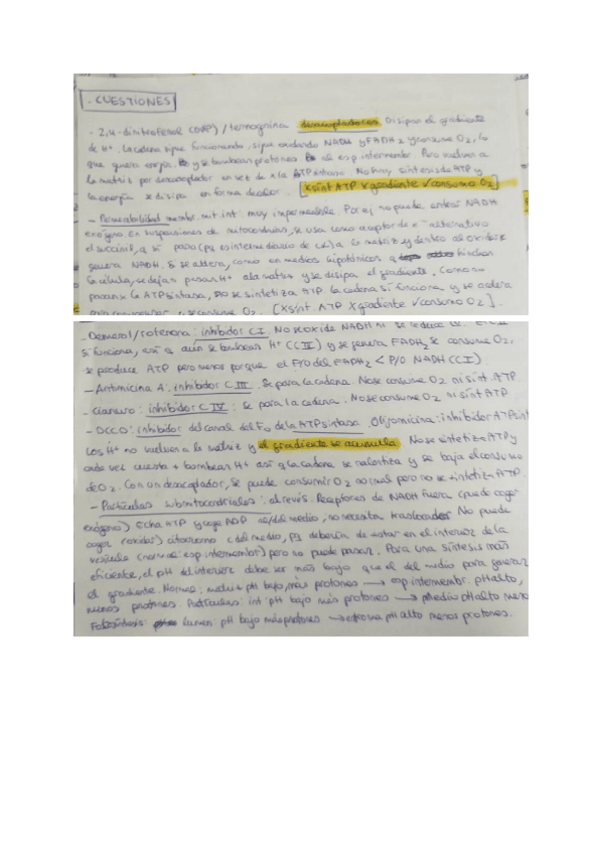 - CUESTIONES
- 2,4-dinitrofenol (DNP) / termognina desacopladores. Disipan el gradiente
de H+. La cadena sigue funcionando, sigue oxidando NADH y FADH2 y consume O2, lo
que genera energía y se bombean protones al esp. intermembr. Pero vuelven a
la matriz por desacoplador en vez de x la ATPsintasa. No hay síntesis de ATP y
la energía se disipa en forma de calor. [X sint ATP X gradiente ✓ consumo O2]
- Permeabilidad membr. mit. int: muy impermeable. Por ej no puede entrar NADH
exógeno. En suspensiones de mitocondrias, se usa como aceptor de e- alternativo
el succinil, q sí pasa (pq es intermediario de CK) a la matriz y dentro al oxidarse
genera NADH. Si se altera, como en medios hipotónicos q hinchan
la célula, se dejan pasar H+ a la matriz y se disipa el gradiente. Como no
pasan x la ATPsintasa, no se sintetiza ATP. La cadena sí funciona y se acelera
consume O2. [X sint. ATP X gradiente ✓ consumo O2].
- Demerol / rotenona: inhibidor CI. No se oxida NADH ni se reduce
si funciona, así q aún se bombean H+ (CIII) y se genera FADH2 se consume O2,
se produce ATP pero menos porque el P/O del FADH2 < P/O NADH (CI)
- Antimicina A: inhibidor CIII. Se para la cadena. No se consume O2 ni sint. ATP
- Cianuro: inhibidor CIV. Se para la cadena. No se consume O2 ni sint ATP
- DCCD: inhibidor del canal del F0 de la ATPsintasa. Oligomicina: inhibidor ATPsint
Los H+ no vuelven a la matriz y el gradiente se acumula. No se sintetiza ATP y
cada vez cuesta + bombear H+ así q la cadena se ralentiza y se baja el consumo
de O2. Con un desacoplador, se puede consumir O2 normal pero no se sintetiza ATP.
- Partículas submitocondriales: al revés. Receptores de NADH fuera (puede coger
exógeno) Echa ATP y coge ADP del medio, no necesita traslocador. No puede
coger citocromo c del medio, pq debería de estar en el interior de la
vesícula (normal: esp intermembr) pero no puede pasar. Para una síntesis más
eficiente, el pH del interior debe ser más bajo que el del medio para generar
el gradiente. Normal: pH bajo, más protones → esp intermembr. pH alto,
menos protones. Partículas: int pH bajo más protones → Medio pH alto menos
Fotosíntesis: lumen: pH bajo más protones → estroma pH alto menos protones.